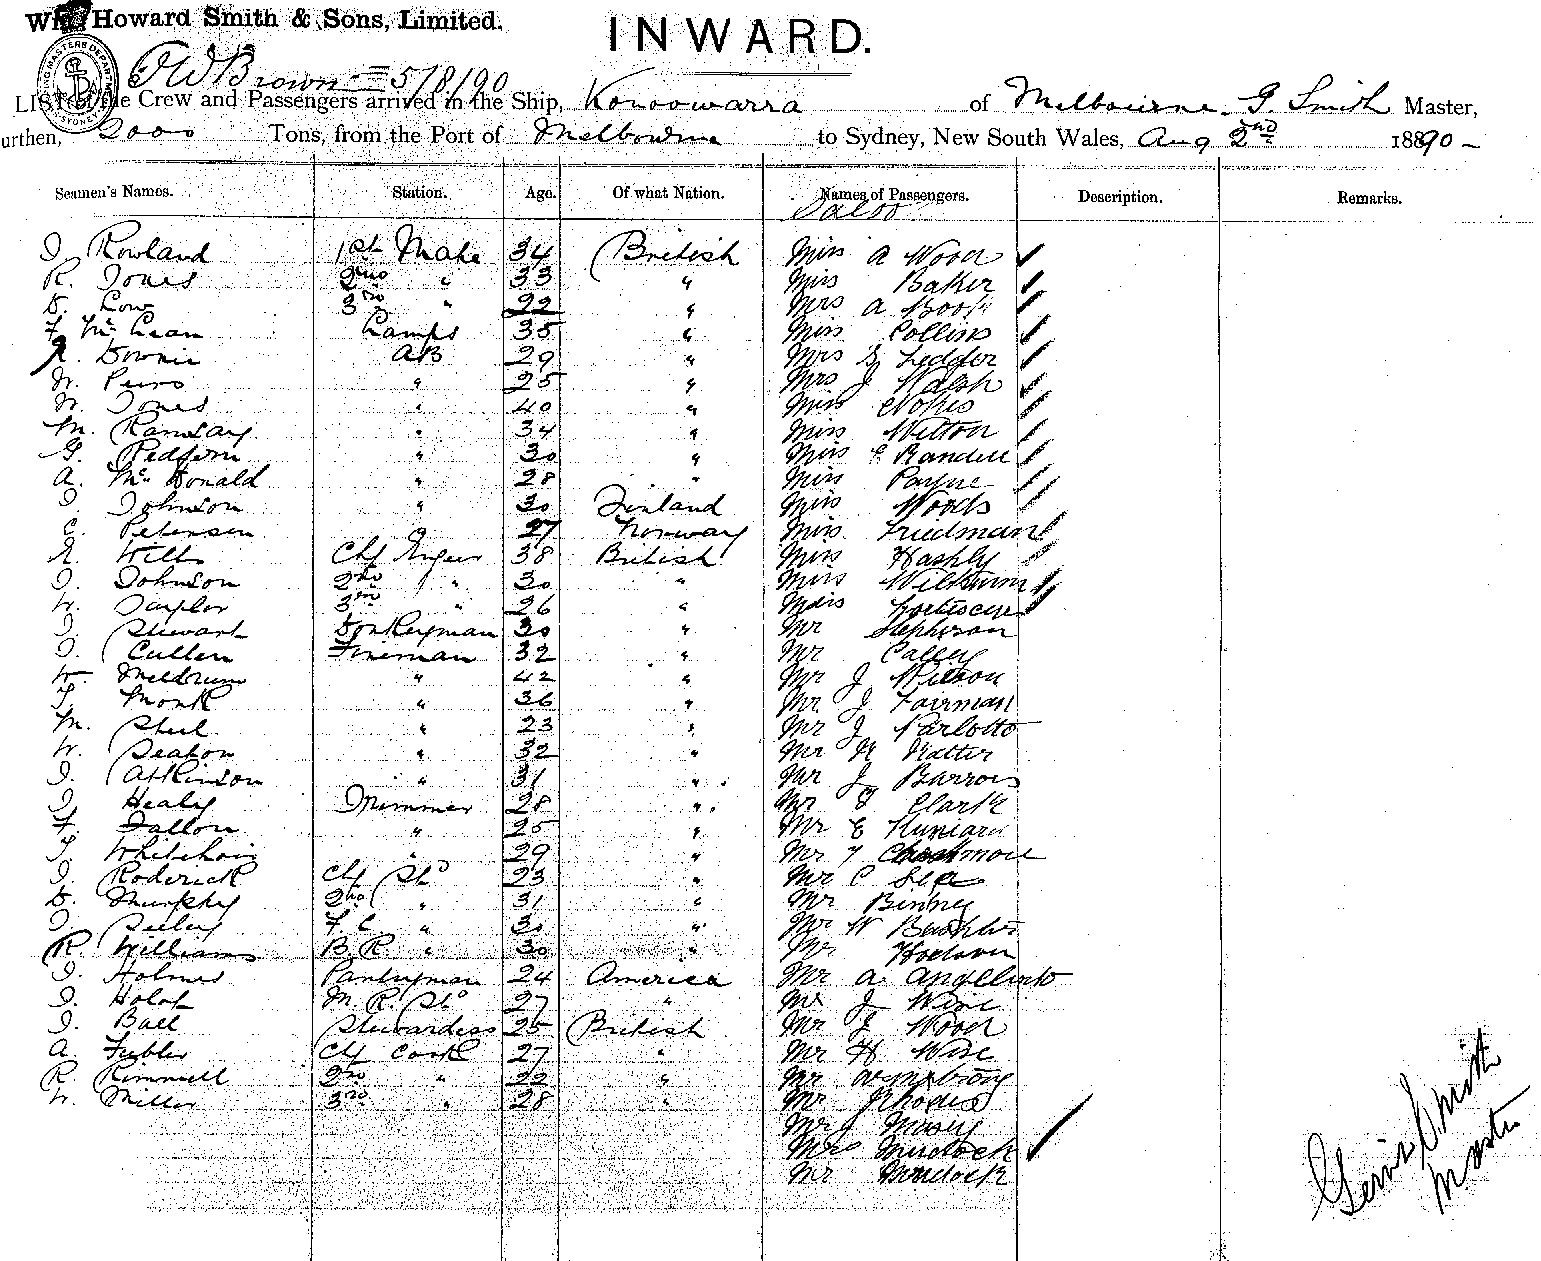 Wm. Howard Smith & Sons, Limited.
INWARD.
5/8/90
LIST of the Crew and Passengers arrived in the Ship, Konoowarra of Melbourne G. Smith Master,
urthen, 2000 Tons, from the Port of Melbourne to Sydney, New South Wales, Aug 2nd 1890
Seamen's Names. Station. Age. Of what Nation. Names of Passengers. Description. Remarks.
J Rowland 1st Mate 34 British Miss A Wood
R. Jones 2nd " 33 " Miss Baker
D. Low 3rd " 22 " Mrs A Book
F McLean Lamps 35 " Miss Collins
Downie AB 29 " Mrs Ledder
W. " 25 " Mrs J Walsh
W. Jones " 40 " Miss Nokes
M. Ramsay " 34 " Miss Witton
G. Redfern " 30 " Miss Randell
A. McDonald " 28 " Miss Payne
J. Johnson " 30 Finland Miss Woods
C. Petersen 27 Norway Miss Friedman
Chf 38 British Miss Hashly
J. Johnson 2nd " 30 " Miss
W. Taylor 3rd " 26 " Fortescue
J. Stewart Donkeyman 30 " Mr Stephenson
J. Cullen Fireman 32 " Mr Calley
W. Meldrum " 42 " Mr J Wilson
T. Monk " 36 " Mr J Fairman
M. " 23 " Mr J Parlotto
W. Seaton " 32 " Mr Natter
J. Atkinson " 31 " Mr J Barrow
J. Healy Trimmer 28 " Mr Clark
F. Fallon " 25 " Mr E
T. " 29 " Mr
J. Roderick Chf Std 23 " Mr C
D. Murphy 2nd " 31 " Mr Binney
J. Seeley F. C " 30 " Mr W
R. Williams B. R. " 30 " Mr Hodson
J. Holmes Pantryman 24 America Mr A. Angelinto
J. Holst M. R. Std 27 " Mr J Wine
J. Ball Stewardess 25 British Mr J Wood
A. Chf Cook 27 " Mr H Wise
R. Rimmell 2nd " 22 " Mr Armstrong
W. Miller 3rd " 28 " Mr Rhodes
Mr J Masey
Mrs Murdock
Mr Murdock
Smith
Master